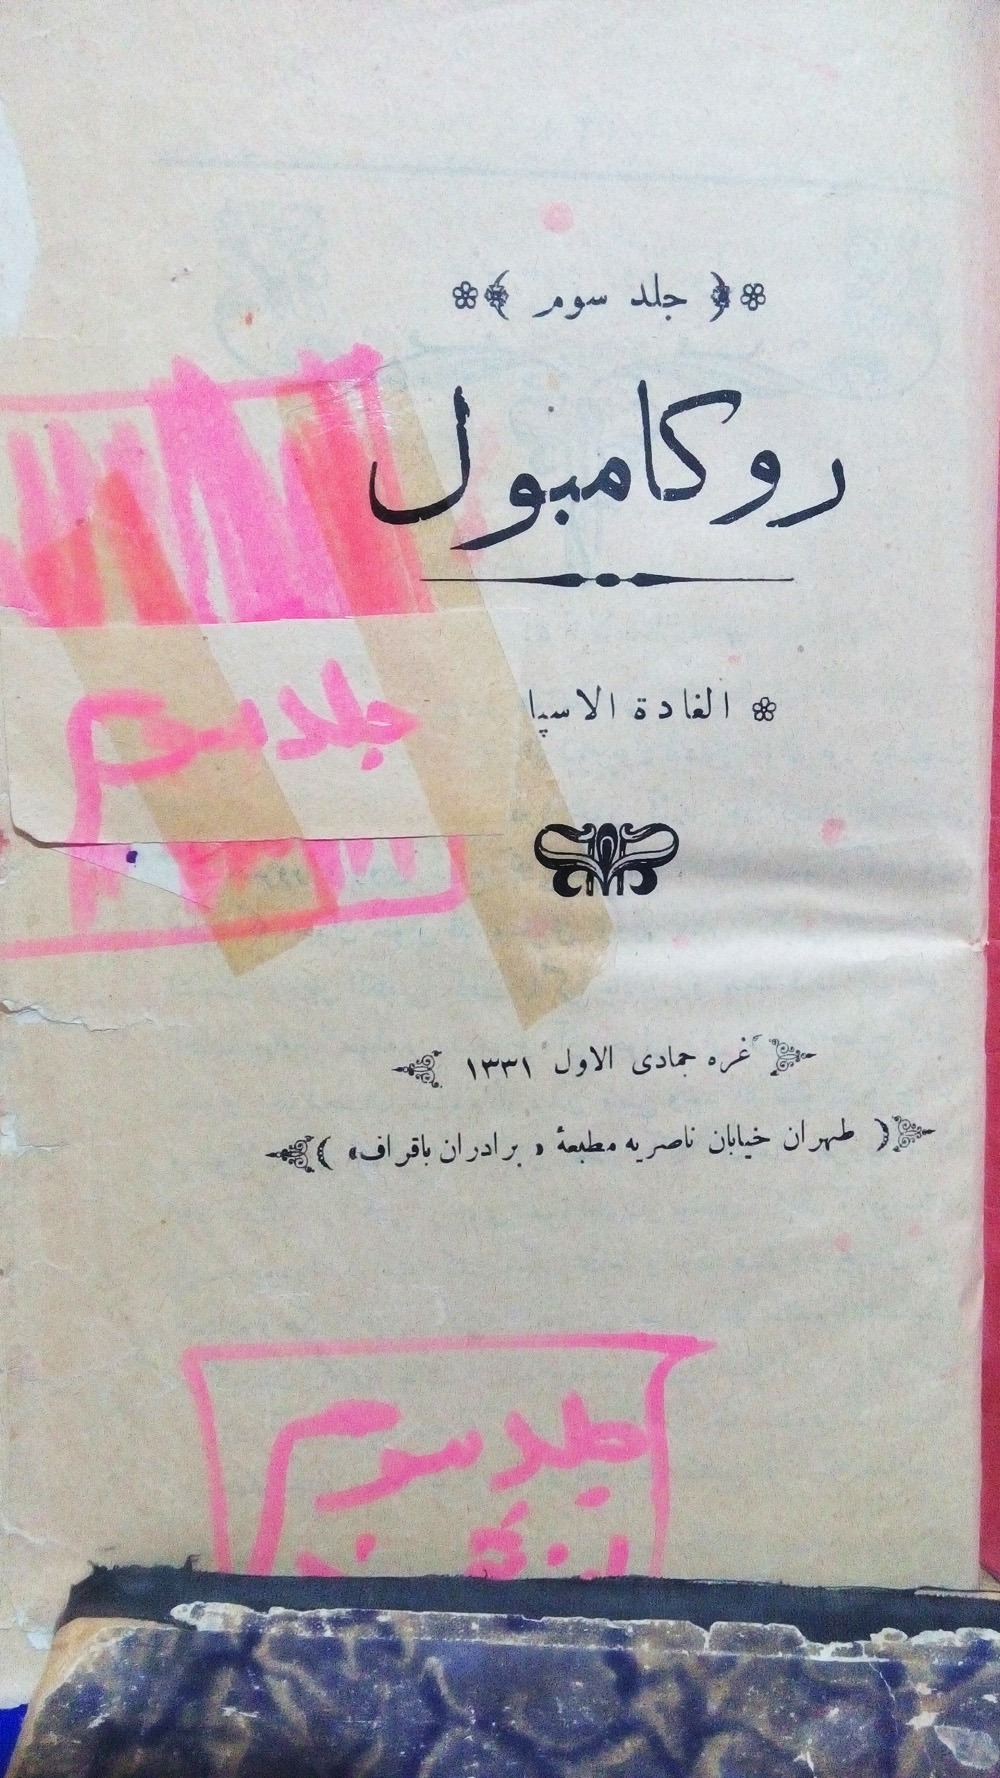 جلد سوم
روکامبول
الغادة الاسپا
جلد سوم
غره جمادی الاول ۱۳۳۱
طهران خیابان ناصریه مطبعهٔ « برادران باقراف»
جلد سوم